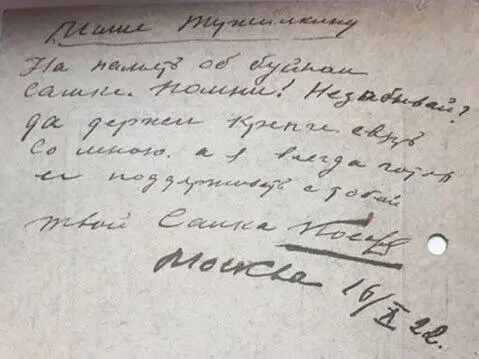 Мише Тужилкину
На память об буйном
Сашке. Помни! Незабывай?
да держи крепче связь
со мною. а я всегда готов
ее поддерживать с тобой
твой Сашка
Москва 16/X 22.